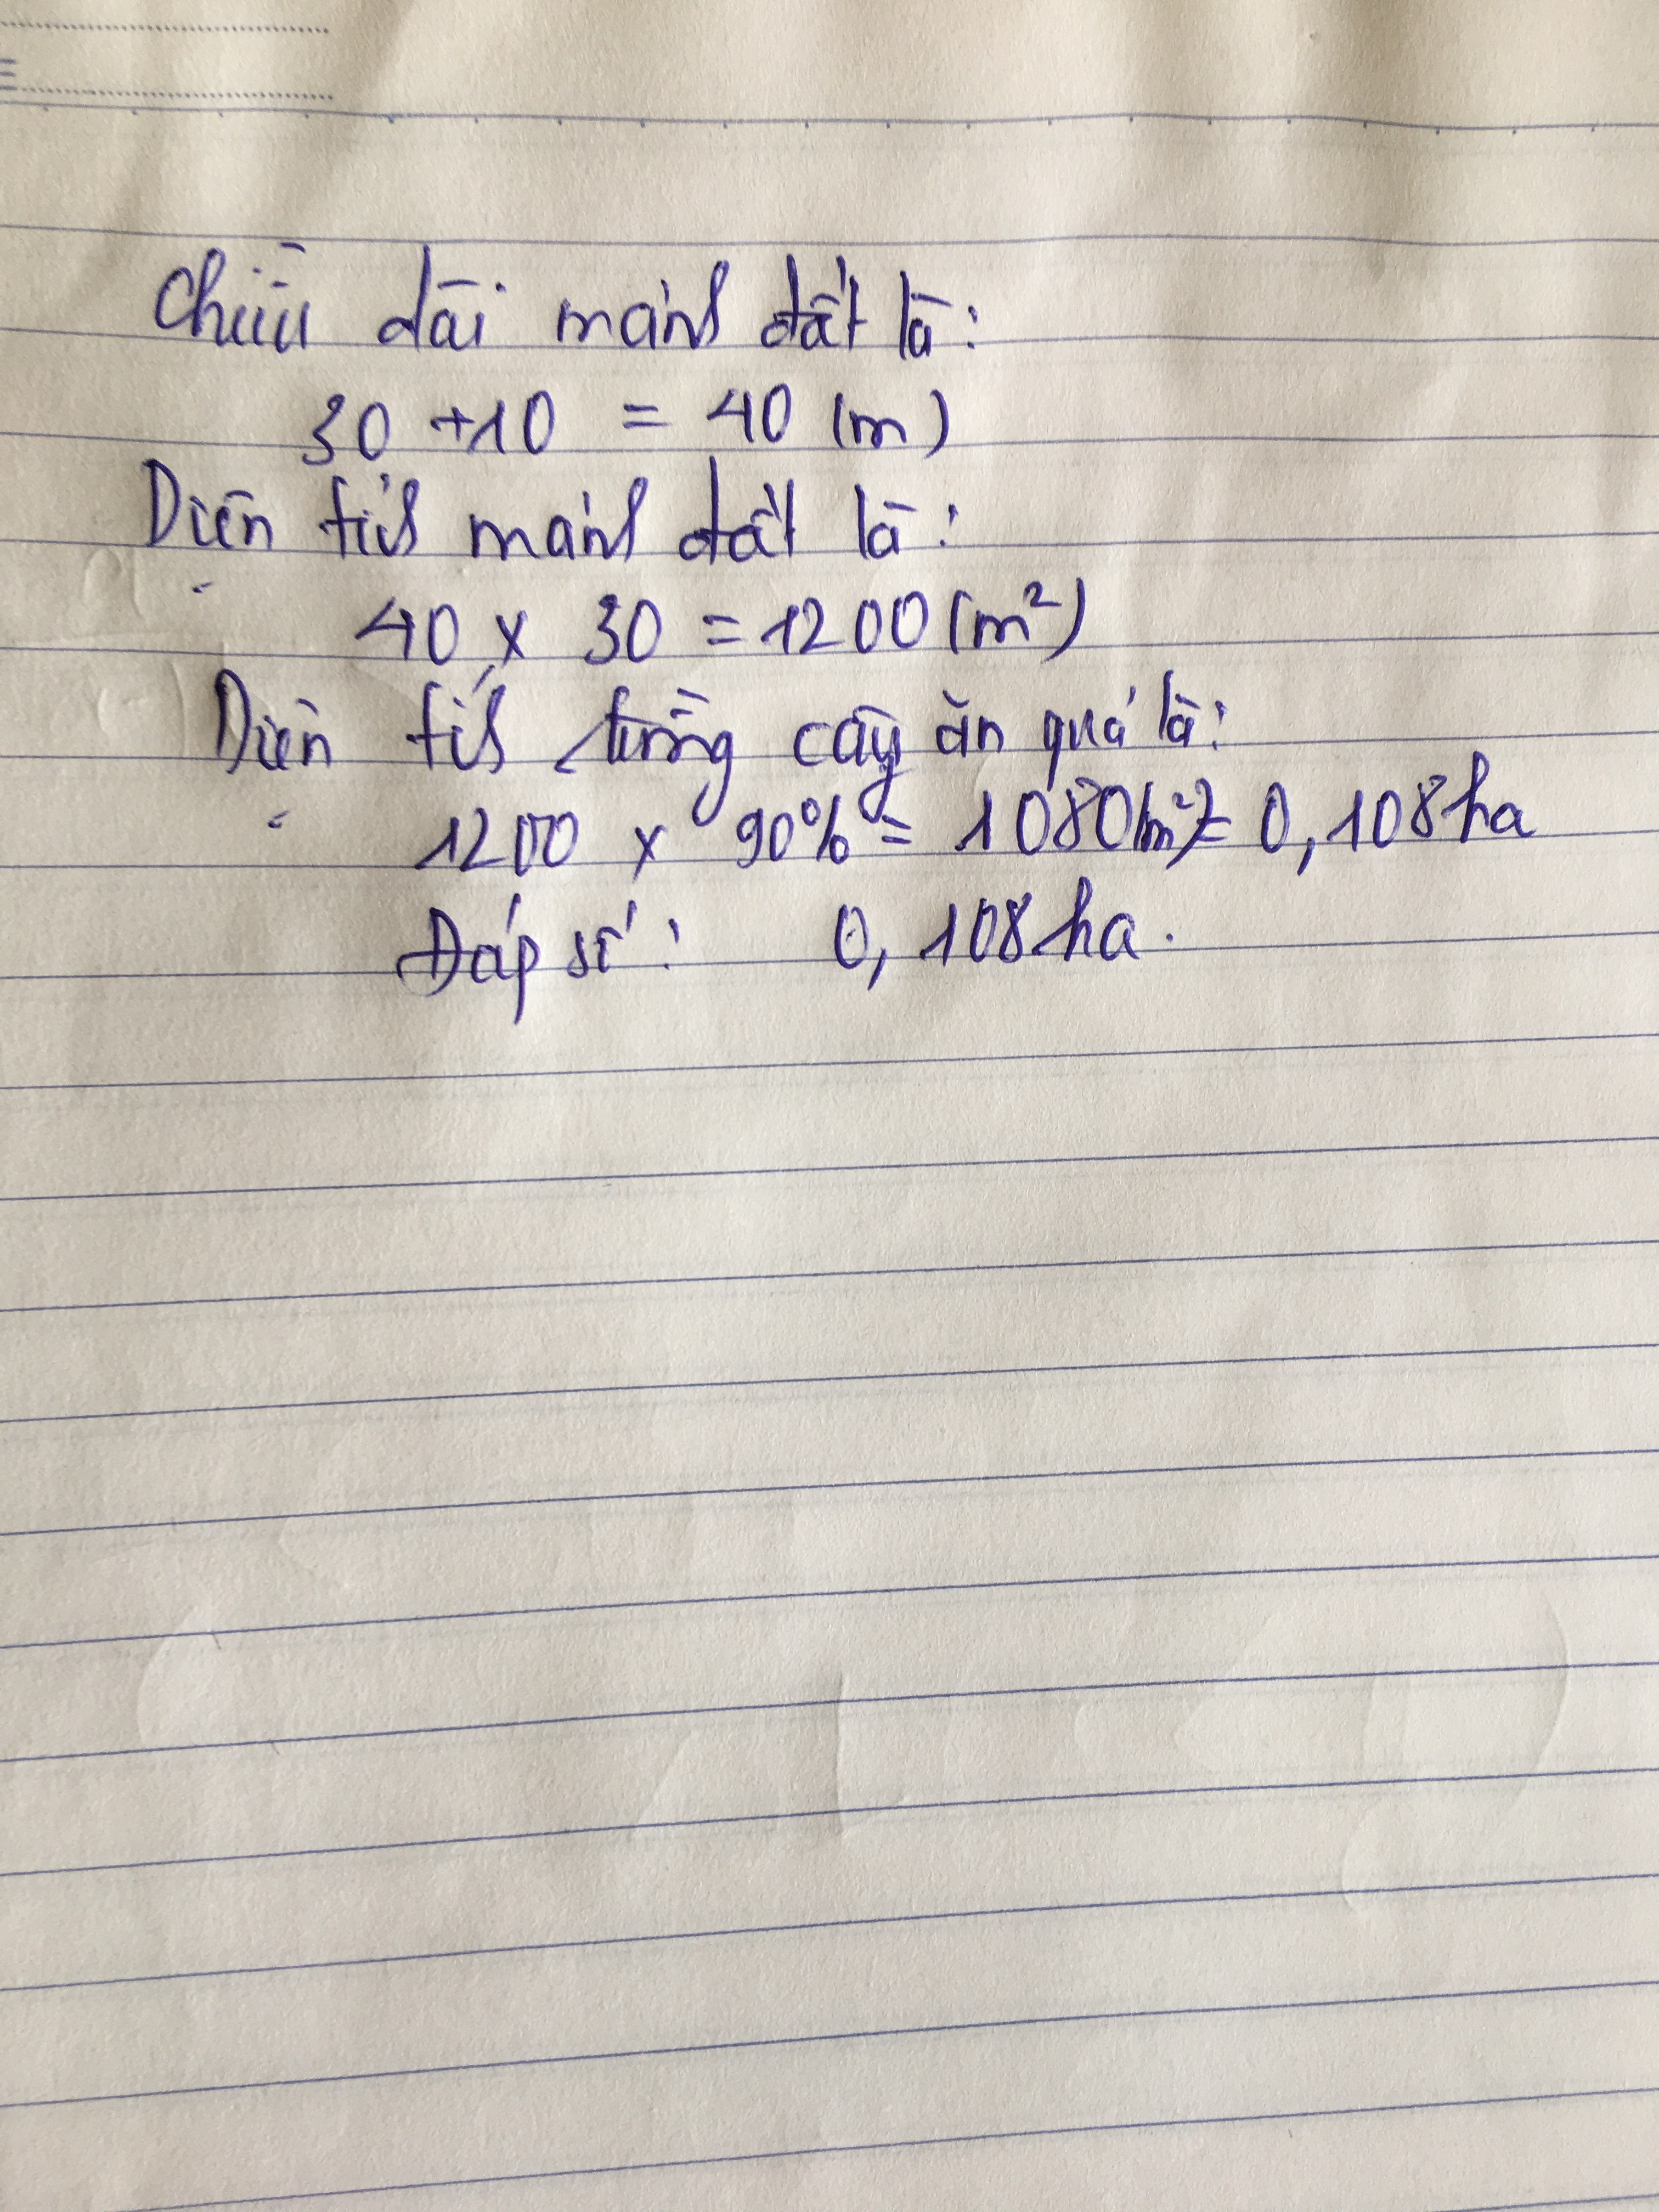 Chiều dài mảnh đất là:
30 + 10 = 40 (m)
Diện tích mảnh đất là:
40 x 30 = 1200 (m²)
Diện tích trồng cây ăn quả là:
1200 x 90% = 1080 (m²) = 0,108 ha
Đáp số: 0,108 ha.